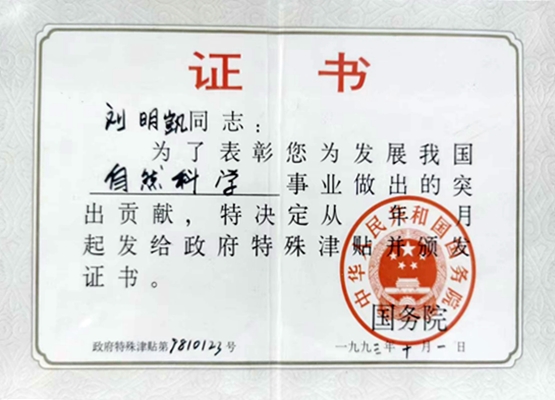 证书
刘明凯同志：
为了表彰您为发展我国
自然科学事业做出的突
出贡献，特决定从 年 月
起发给政府特殊津贴并颁发
证书。
中华人民共和国国务院
国务院
政府特殊津贴第9810123号
一九九三年十月一日